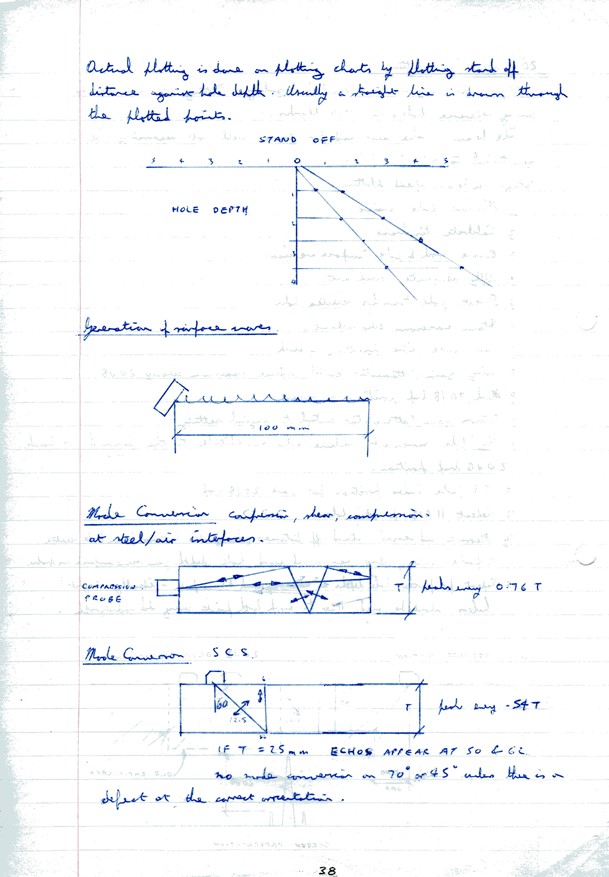 Actual plotting is done on plotting charts by plotting stand off
distance against hole depth. Usually a straight line is drawn through
the plotted points.
STAND OFF
5 4 3 2 1 0 1 2 3 4 5
HOLE DEPTH
1
2
3
4
Generation of surface waves.
100 mm
Mode Conversion compression, shear, compression.
at steel/air interfaces.
COMPRESSION
PROBE
T peaks every 0.76 T
Mode Conversion S C S.
60
12.5
T peak every .54 T
IF T = 25 mm ECHOS APPEAR AT 50 & 62
no mode conversion on 70° or 45° unless there is a
defect at the correct orientation.
38